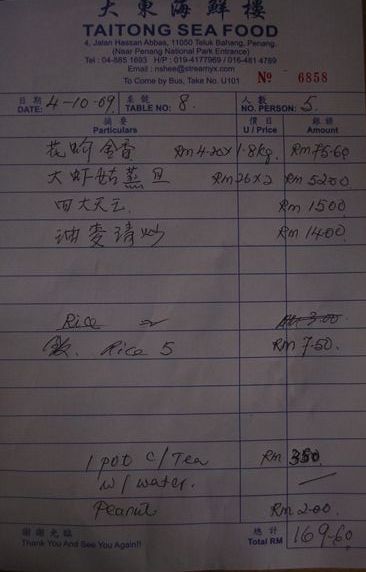 大東海鮮樓
TAITONG SEA FOOD
4, Jalan Hassan Abbas, 11050 Teluk Bahang, Penang.
(Near Penang National Park Entrance)
Tel : 04-885 1693 H/P : 019-4177969 / 016-481 4789
Email : nshee@streamyx.com
To Come by Bus, Take No. U101
№ 6858
日期 DATE: 4-10-09 枱號 TABLE NO: 8. 人數 NO. PERSON: 5.
摘要 價目 銀額
Particulars U / Price Amount
Rm 4.20 x 1.8kg. Rm 75.60
大虾 蒸旦 Rm 26 x 2 Rm 52.00
四大天王 Rm 15.00
油麦清炒 Rm 14.00
Rice 2 Rm 3.00
飯. Rice 5 Rm 7.50.
1 pot c/Tea Rm 3.50
w/water.
Peanut Rm 2.00
謝謝光臨 總計
Thank You And See You Again!! Total RM 169.60